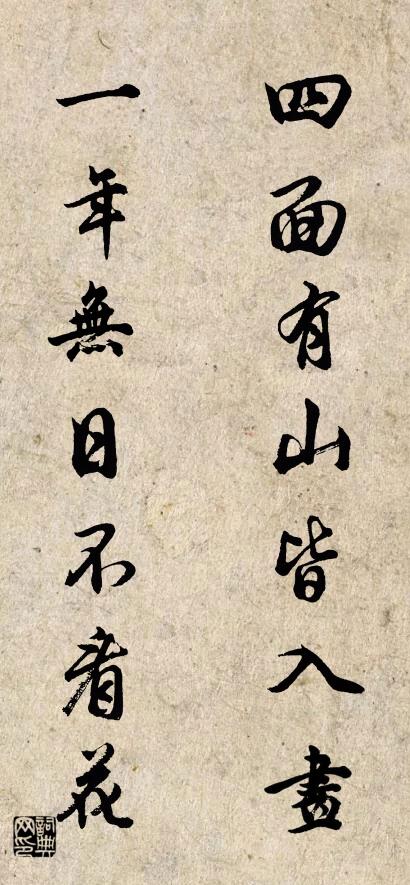 四面有山皆入畫
一年無日不看花
詞典网印